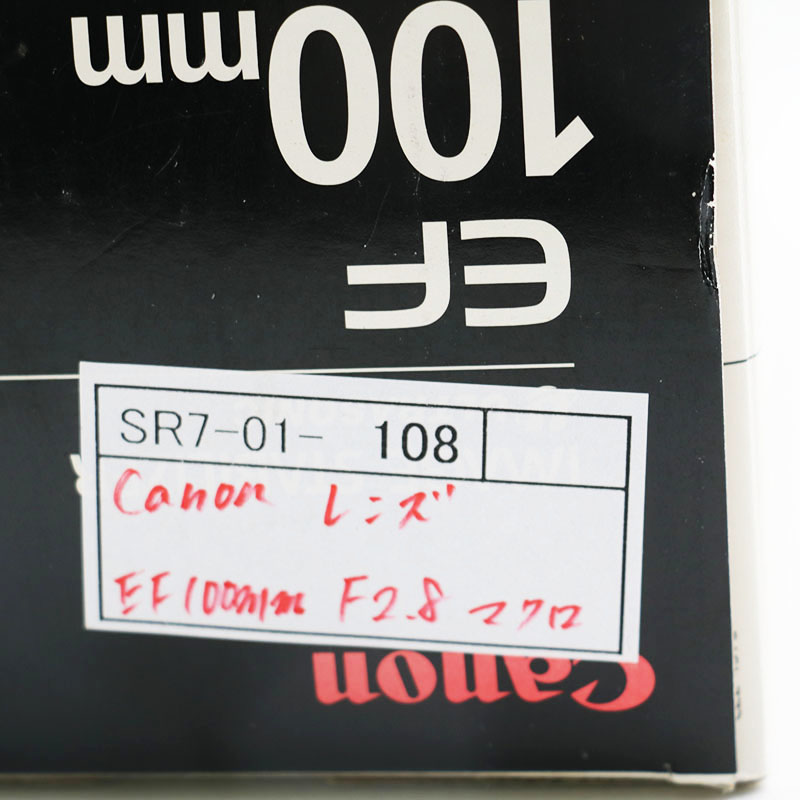 100mm
EF
SR7-01- 108
Canon レンズ
EF100mm F2.8 マクロ
Canon